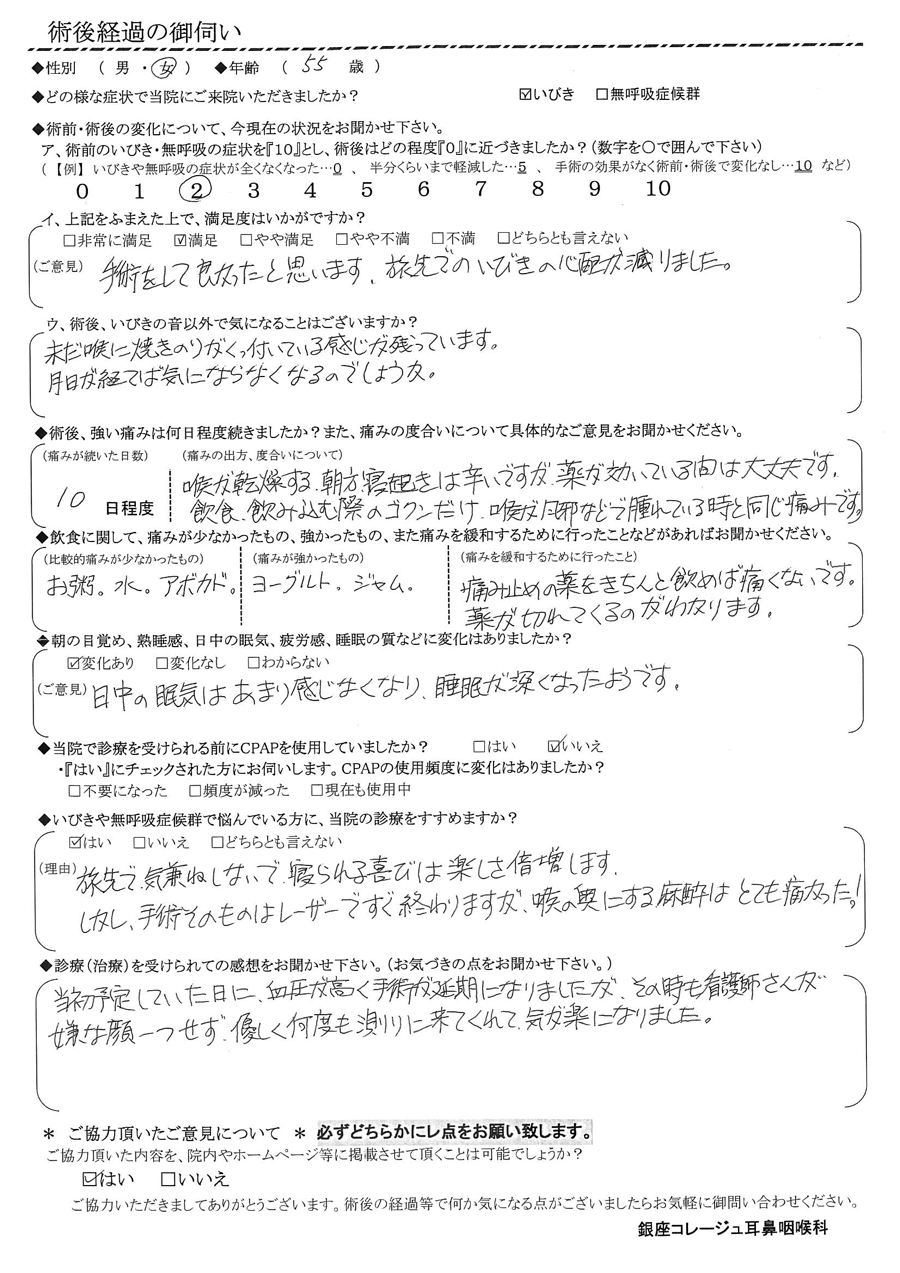 術後経過の御伺い
◆性別 ( 男 ・ 女 ) ◆年齢 ( 55 歳 )
◆どの様な症状で当院にご来院いただきましたか? ☑いびき □無呼吸症候群
◆術前・術後の変化について、今現在の状況をお聞かせ下さい。
ア、術前のいびき・無呼吸の症状を『10』とし、術後はどの程度『0』に近づきましたか?(数字を○で囲んで下さい)
(【例】いびきや無呼吸の症状が全くなくなった…0 、 半分くらいまで軽減した…5 、 手術の効果がなく術前・術後で変化なし…10 など)
0 1 2 3 4 5 6 7 8 9 10
イ、上記をふまえた上で、満足度はいかがですか?
□非常に満足 ☑満足 □やや満足 □やや不満 □不満 □どちらとも言えない
(ご意見) 手術をして良かったと思います、旅先でのいびきの心配が減りました。
ウ、術後、いびきの音以外で気になることはございますか?
未だ喉に焼きのりがくっ付いている感じが残っています。
月日が経てば気にならなくなるのでしょうか。
◆術後、強い痛みは何日程度続きましたか?また、痛みの度合いについて具体的なご意見をお聞かせください。
(痛みが続いた日数) (痛みの出方、度合いについて)
喉が乾燥する、朝方寝起きは辛いですが、薬が効いている間は大丈夫です。
10 日程度 飲食、飲み込む際のゴクンだけ、喉が風邪などで腫れている時と同じ痛みです。
◆飲食に関して、痛みが少なかったもの、強かったもの、また痛みを緩和するために行ったことなどがあればお聞かせください。
(比較的痛みが少なかったもの) (痛みが強かったもの) (痛みを緩和するために行ったこと)
お粥。水。アボカド。 ヨーグルト。ジャム。 痛み止めの薬をきちんと飲めば痛くないです。
薬が切れてくるのがわかります。
◆朝の目覚め、熟睡感、日中の眠気、疲労感、睡眠の質などに変化はありましたか?
☑変化あり □変化なし □わからない
(ご意見) 日中の眠気はあまり感じなくなり、睡眠が深くなったようです。
◆当院で診療を受けられる前にCPAPを使用していましたか? □はい ☑いいえ
・『はい』にチェックされた方にお伺いします。CPAPの使用頻度に変化はありましたか?
□不要になった □頻度が減った □現在も使用中
◆いびきや無呼吸症候群で悩んでいる方に、当院の診療をすすめますか?
☑はい □いいえ □どちらとも言えない
(理由) 旅先で、気兼ねしないで、寝られる喜びは楽しさ倍増します、
しかし、手術そのものはレーザーですぐ終わりますが、喉の奥にする麻酔はとても痛かった!
◆診療(治療)を受けられての感想をお聞かせ下さい。(お気づきの点をお聞かせ下さい。)
当初予定していた日に、血圧が高く手術が延期になりましたが、その時も看護師さんが
嫌な顔一つせず、優しく何度も測りに来てくれて、気が楽になりました。
* ご協力頂いたご意見について * 必ずどちらかにレ点をお願い致します。
ご協力頂いた内容を、院内やホームページ等に掲載させて頂くことは可能でしょうか?
☑はい □いいえ
ご協力いただきましてありがとうございます。術後の経過等で何か気になる点がございましたらお気軽に御問い合わせください。
銀座コレージュ耳鼻咽喉科